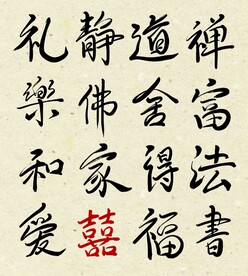 礼静道禅
樂佛舍富
和家得法
爱囍福書